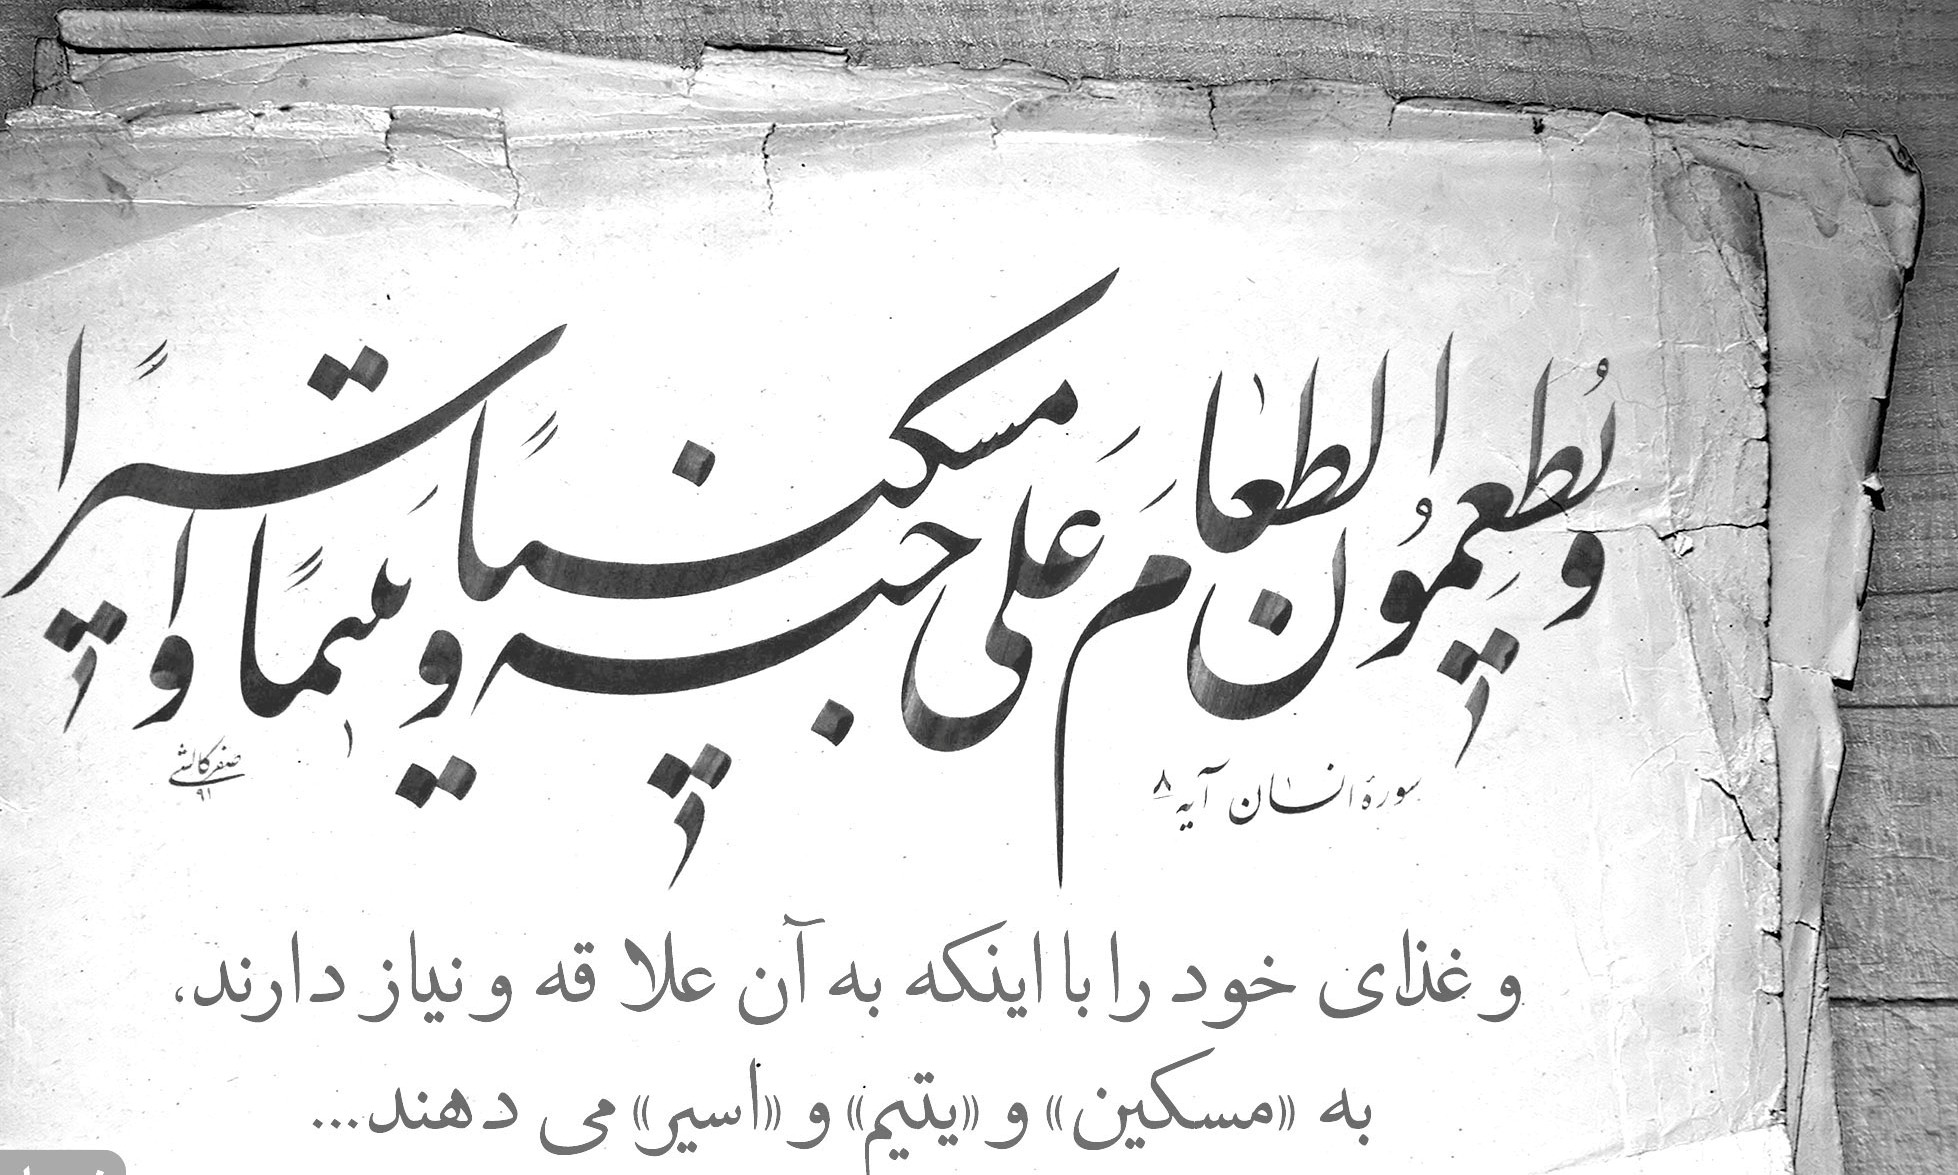 وَيُطعِمُونَ الطعامَ عَلى حبّه مسكينًا وَيتيمًا وَاسيرًا
سورهٔ انسان آیه ۸
و غذای خود را با اینکه به آن علاقه و نیاز دارند،
به «مسکین» و «یتیم» و «اسیر» می دهند...